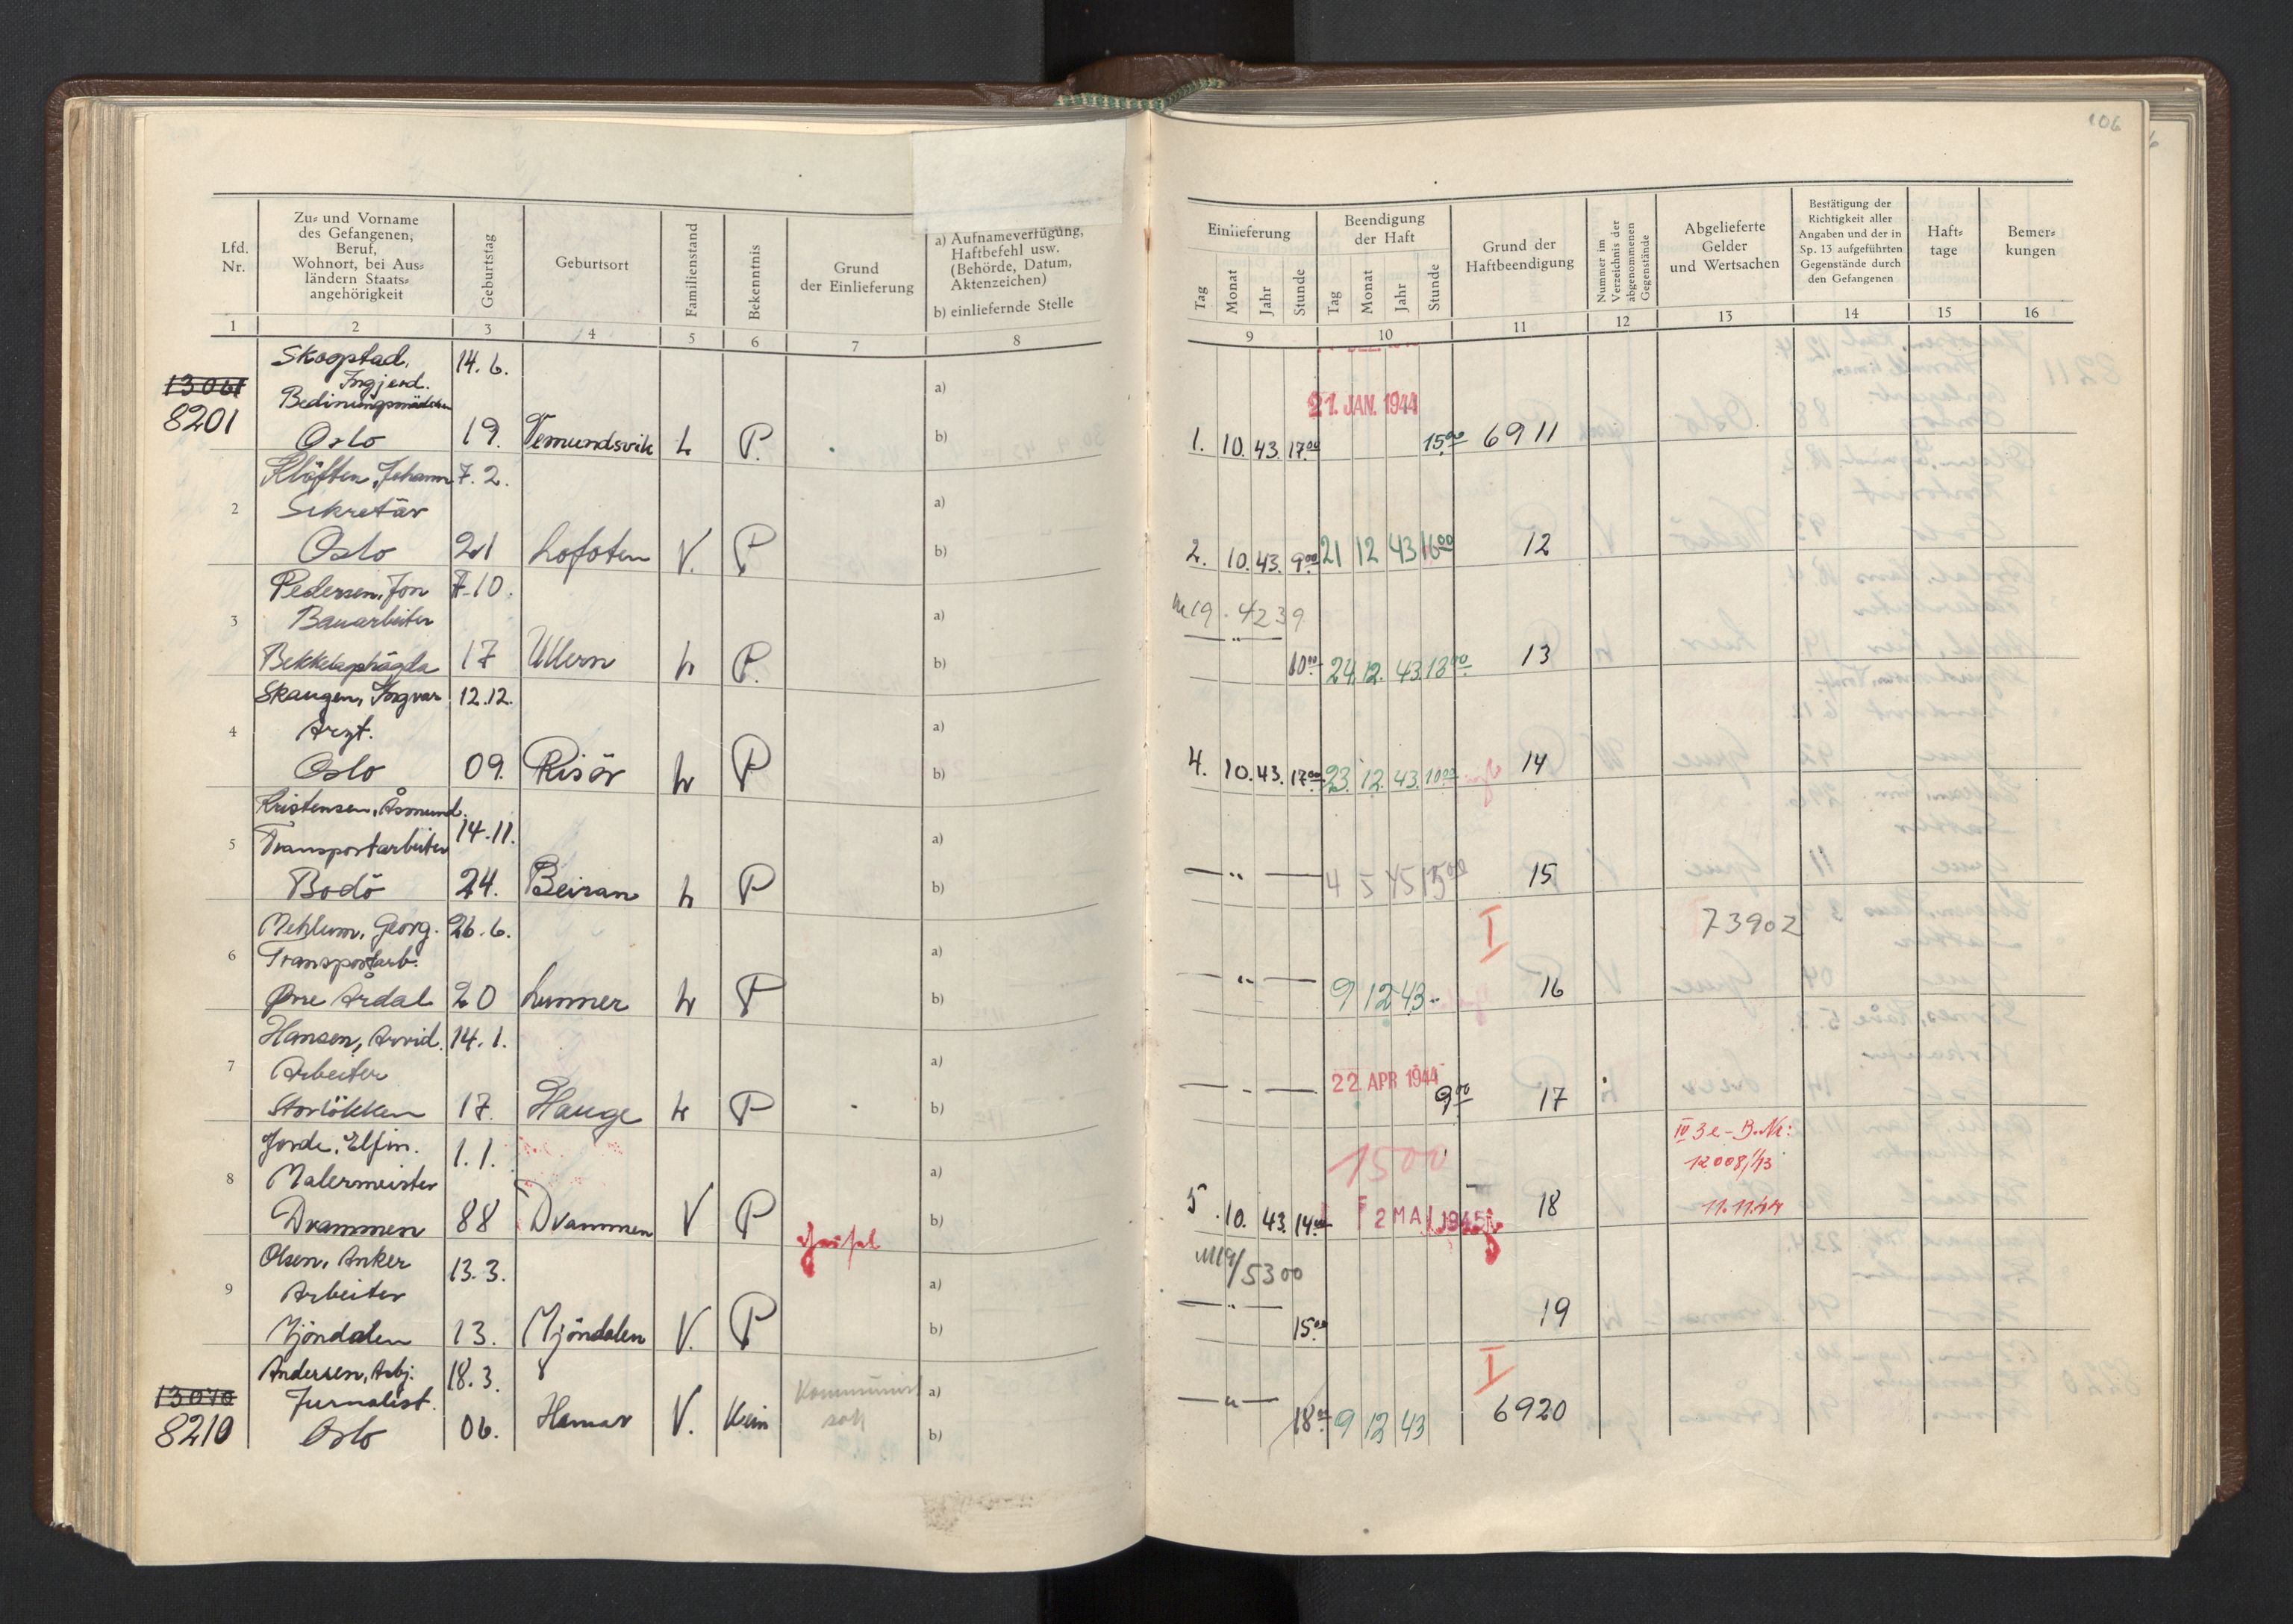 106
Lfd.
Nr.
Zu- und Vorname
des Gefangenen,
Beruf,
Wohnort, bei Aus-
ländern Staats-
angehörigkeit
Geburtstag
Geburtsort
Familienstand
Bekenntnis
Grund
der Einlieferung
a) Aufnameverfügung,
Haftbefehl usw.
(Behörde, Datum,
Aktenzeichen)
b) einliefernde Stelle
1 2 3 4 5 6 7 8
Einlieferung
Tag Monat Jahr Stunde
Beendigung
der Haft
Tag Monat Jahr Stunde
Grund der
Haftbeendigung
Nummer im
Verzeichnis der
abgenommenen
Gegenstände
Abgelieferte
Gelder
und Wertsachen
Bestätigung der
Richtigkeit aller
Angaben und der in
Sp. 13 aufgeführten
Gegenstände durch
den Gefangenen
Haft-
tage
Bemer-
kungen
9 10 11 12 13 14 15 16
Skogstad, 14.6.
Ingjerd.
13061 Bedinungsmädchen a)
8201 Oslo 19. Vemundsvik L P. b)
21. JAN. 1944
1. 10. 43. 1700 1500 6911
Kläften, Johann 7.2.
2 Sekretär a)
Oslo 21 Lofoten V. P b)
2. 10. 43. 900 21 12 43 1600 12
Pedersen, Jon 7.10.
3 Bauarbeiter a)
Bekkelagshögda 17 Ullern L P. b)
4239
— " — 1000 24. 12. 43. 1300 13
Skaugen, Ingvar 12.12.
4 Arzt. a)
Oslo 09. Risör L P b)
4. 10. 43. 1700 23. 12. 43. 1000 14
Kristensen, Åsmund.
5 Transportarbeiter 14.11. a)
Bodö 24. Beiran L P b)
— " — 4 5 45 1500 15
Mehlum, Georg. 26.6.
6 Transportarb. a)
Øvre Årdal 20 Lunner L P b)
I 73902
— " — 9 12 43 16
Hansen, Arvid. 14.1.
7 Arbeiter a)
Storlökken 17. Hauge L P b)
22. APR 1944
— " — 900 17
Jorde, Elfin. 1.1.
8 Malermeister a)
Drammen 88 Drammen V P b)
IV 3e – B.Nr:
12008/43
11.11.44
1500
5. 10. 43. 1400 2 MAI 1945 18
Olsen, Anker 13.3.
9 Arbeiter a)
Mjöndalen 13. Mjöndalen V. P b)
5300
— " — 1500 19
Andersen, Asbj. 18.3.
13070 Jurnalist. a)
8210 Oslo 06. Hamar V. Kein b)
Kommunist
I
— " — 1800 9 12 43 6920